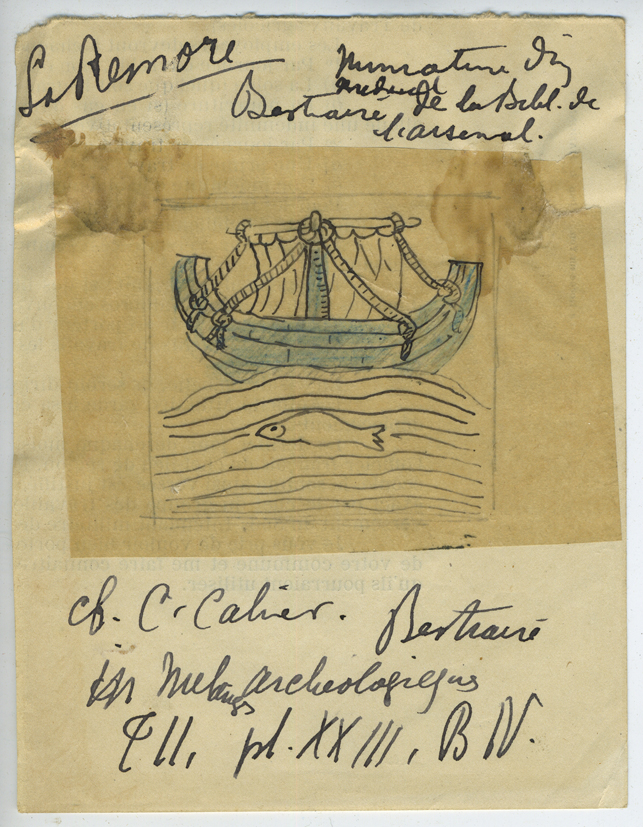 La Remore
Miniature d'un
médiéval
Bestiaire de la Bibl. de
l'arsenal.
de votre commune et me faire
qu'ils pourraient utiliser.
cf. C. Cahier. Bestiaire
in Mélanges archéologiques
T II, pl. XXIII, B N.